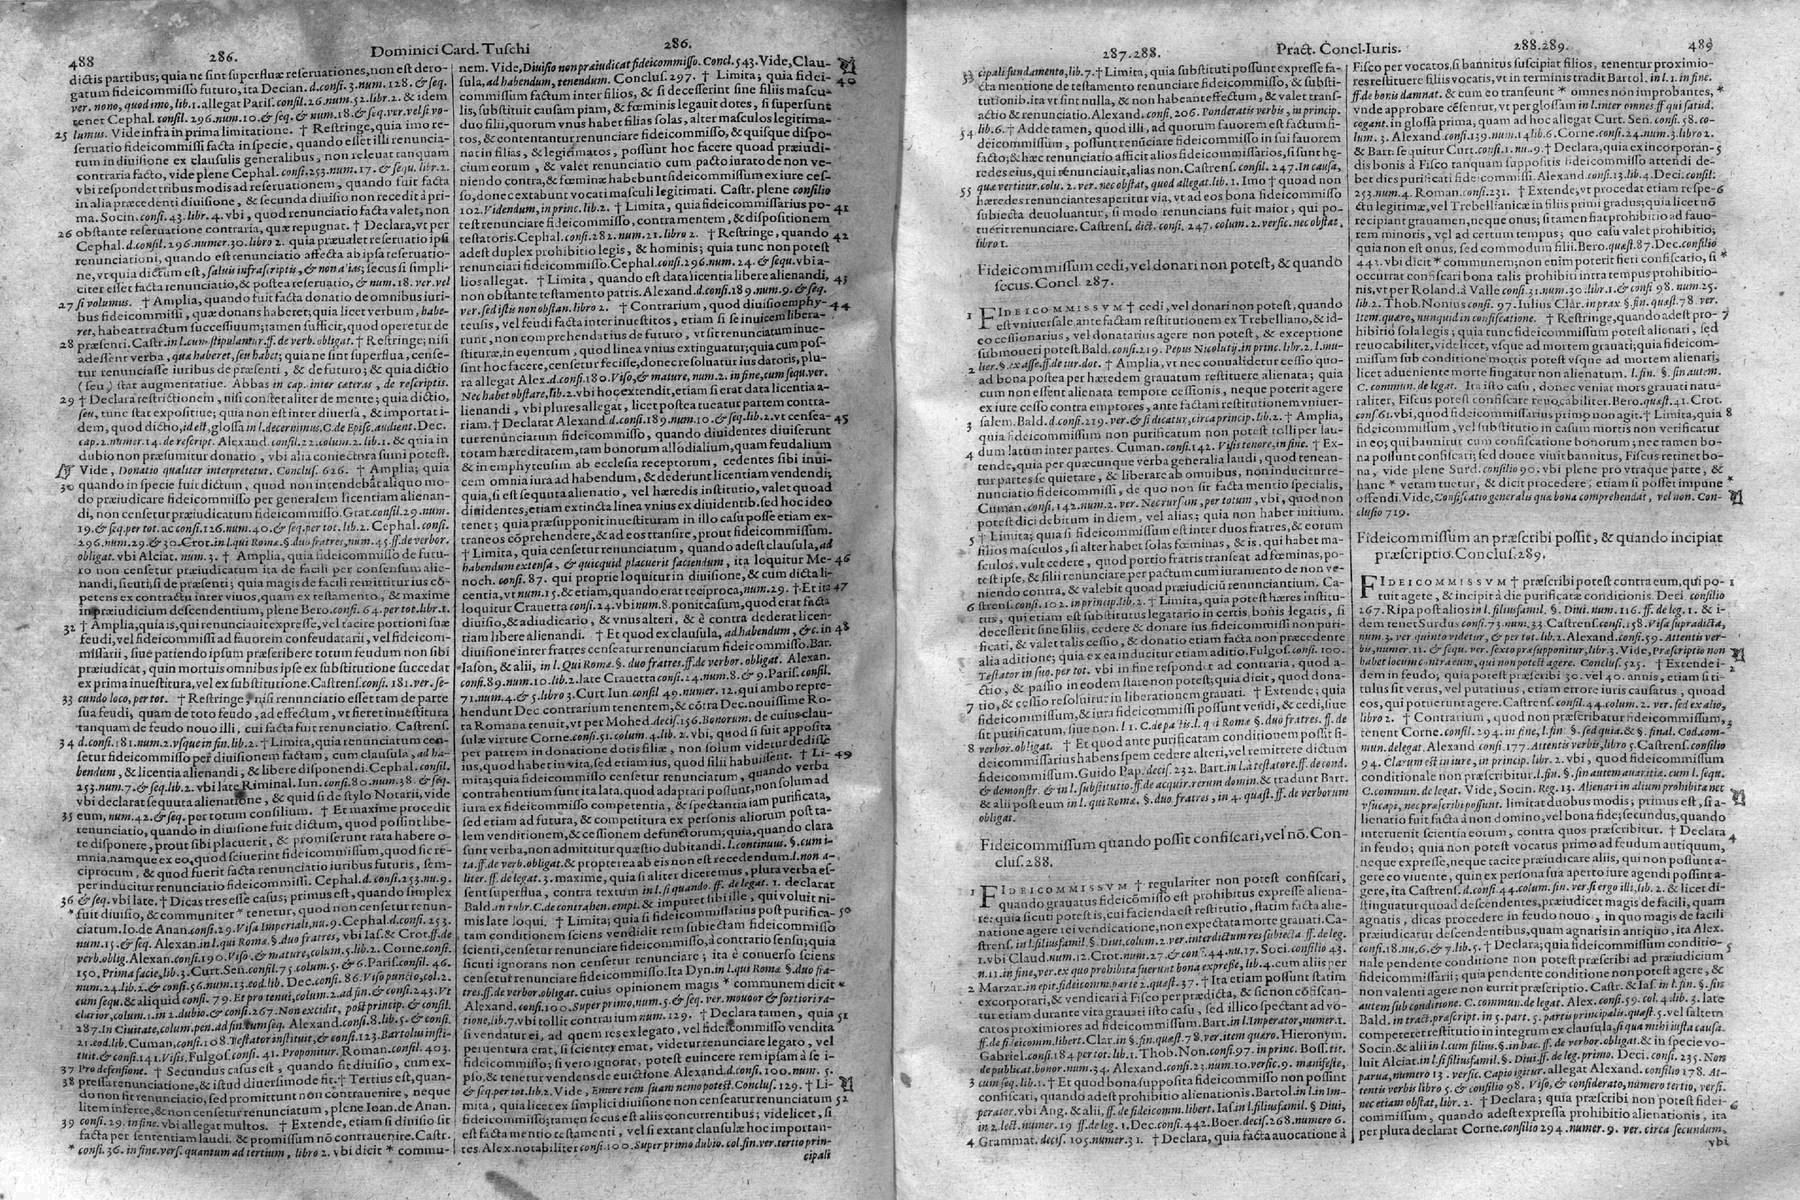 488
286.
Dominici Card. Tuschi
286.
dictis partibus; quia ne sint superfluæ reseruationes, non est dero-
gatum fideicommisso futuro, ita Decian. d.consi.3.num.128. & seq.
ver. nono, quod imo, lib.1. allegat Paris. consil.26.num.52.libr.2. & idem
tenet Cephal. consil. 296.num.10. & seq. num.18. & seq.ver.vel si vo-
25 lumus. Vide infra in prima limitatione. † Restringe, quia imo re-
seruatio fideicommissi facta in specie, quando esset illi renuncia-
tum in diuisione ex clausulis generalibus, non releuat tanquam
contraria facto, vide plene Cephal. consi.253.num.17. & sequ. libr.2.
vbi respondet tribus modis ad reseruationem, quando fuit facta
in alia præcedenti diuisione, & secunda diuisio non recedit à pri-
ma. Socin. consi. 43. libr. 4. vbi, quod renunciatio facta valet, non
obstante reseruatione contraria, quæ repugnat. † Declara, vt per
26 Cephal. d.consil.296.numer.30. libro 2. quia præualet reseruatio ipsi
renunciationi, quando est renunciatio affecta ab ipsa reseruatio-
ne, vt quia dictum est, saluis infrascriptis, & non alias; secus si simpli-
citer esset facta renunciatio, & postea reseruatio, & num.18. ver.vel
27 si volumus. † Amplia, quando fuit facta donatio de omnibus iuri-
bus fideicommissi, quæ donans haberet; quia licet verbum, habe-
ret, habeat tractum successiuum; tamen sufficit, quod operetur de
28 præsenti. Castr. in l.cum stipulantur.ff.de verb.obligat. † Restringe; nisi
adessent verba, quæ haberet, seu habet; quia ne sint superflua, cense-
tur renunciasse iuribus de præsenti, & de futuro; & quia dictio
(seu) stat augmentatiue. Abbas in cap. inter cæteras, de rescriptis.
29 † Declara restrictionem, nisi constet aliter de mente; quia dictio,
seu, tunc stat expositiue; quia non est inter diuersa, & importat i-
dem, quod dictio, id est, glossa in l.decernimus.C.de Episc.audient. Dec.
cap.2.numer.14.de rescript. Alexand. consil.22.colum.2.lib.1. & quia in
dubio non præsumitur donatio, vbi alia coniectura sumi potest.
Vide, Donatio qualiter interpretetur. Conclus. 626. † Amplia; quia
30 quando in specie fuit dictum, quod non intendebat aliquo mo-
do præiudicare fideicommisso per generalem licentiam alienan-
di, non censetur præiudicatum fideicommisso. Grat. consil.29.num.
19. & seq.per tot. ac consi.126.num.40. & seq.per tot.lib.2. Cephal. consi.
296.num.29.&30. Crot. in l.qui Romæ.§.duo fratres,num.45.ff.de verbor.
obligat. vbi Alciat. num.3. † Amplia, quia fideicommisso de futu-
ro non censetur præiudicatum ita de facili per consensum alie-
nandi, sicuti, si de præsenti; quia magis de facili remittitur ius cō-
petens ex contractu inter viuos, quam ex testamento, & maxime
in præiudicium descendentium, plene Bero. consi. 64. per tot.libr.1.
32 † Amplia, quia is, qui renunciauit expresse, vel tacite portioni suæ
feudi, vel fideicommissi ad fauorem confeudatarii, vel fideicom-
missarii, siue patiendo ipsum præscribere totum feudum non sibi
præiudicat, quin mortuis omnibus ipse ex substitutione succedat
ex prima inuestitura, vel ex substitutione. Castrens. consi. 181. ver. se-
33 cundo loco, per tot. † Restringe, nisi renunciatio esset tam de parte
sua feudi, quam de toto feudo, ad effectum, vt fieret inuestitura
tanquam de feudo nouo illi, cui facta fuit renunciatio. Castrens.
34 d.consi.181.num.2.vsque in fin.lib.2. † Limita, quia renunciatum cen-
setur fideicommissum per diuisionem factam, cum clausula, ad ha-
bendum, & licentia alienandi, & libere disponendi. Cephal. consil.
253.num.7.& seq.lib.2. vbi late Riminal. Iun. consi.80.num.38. & seq.
vbi declarat sequuta alienatione, & quid si de stylo Notarii, vide
35 eum, num.42. & seq. per totum consilium. † Et maxime procedit
renunciatio, quando in diuisione fuit dictum, quod possint libe-
re disponere, prout sibi placuerit, & promiserunt rata habere o-
mnia, namque ex eo, quod sciuerint fideicommissum, quod sic re-
ciprocum, & quod fuerit facta renunciatio iuribus futuris, sem-
per inducitur renunciatio fideicommissi. Cephal. d.consil.253.nu.9.
36 & seq. vbi late. † Dicas tres esse casus; primus est, quando simplex
* fuit diuisio, & communiter * tenetur, quod non censetur renun-
ciatum. Io. de Anan. consi.29. Visa Imperiali, nu.9. Cephal.d.consi. 253.
num.15.& seq. Alexan. in l.qui Romæ.§.duo fratres, vbi Ias. & Crot.ff.de
verb.oblig. Alexan. consi.190. Viso, & mature, colum.5.lib.2. Corne. consi.
150. Prima facie, lib.3. Curt.Sen. consil.75. colum.5. & 6. Paris. consil. 46.
num.24.lib.2. & consi.56.num.13.eod.lib. Dec. consi.86. Viso puncto, col.2.
cum sequ. & aliquid consi. 79. Et pro tenui, colum.2.ad fin. & consi.243. Vt
clarior, colum.1.in 2.dubio. & consi.267. Non excidit, post princip. & consil.
287. In Ciuitate, colum.pen.ad fin.cum seq. Alexand. consi.8.lib.5. & consi.
21.eod.lib. Cuman. consi.108. Testator instituit, & consi.123. Bartolus insti-
tuit. & consi.141. Visis. Fulgos. consi. 41. Proponitur. Roman. consil. 403.
37 Pro defensione. † Secundus casus est, quando fit diuisio, cum ex-
38 pressa renunciatione, & istud diuersimode fit. † Tertius est, quan-
do non fit renunciatio, sed promittunt non contrauenire, neque
litem inferre, & non censetur renunciatum, plene Ioan. de Anan.
39 consi.29. in fine. vbi allegat multos. † Extende, etiam si diuisio sit
facta per sententiam laudi. & promissum nō contrauenire. Castr.
* consi. 36. in fine. vers. quantum ad tertium, libro 2. vbi dicit * commu-
nem. Vide, Diuisio non præiudicat fideicommisso. Concl.543. Vide, Clau-
sula, ad habendum, tenendum. Conclus. 297. † Limita; quia fidei- 40
commissum factum inter filios, & si decesserint sine filiis mascu-
lis, substituit causam piam, & fœminis legauit dotes, si supersunt
duo filii, quorum vnus habet filias solas, alter masculos legitima-
tos, & contentantur renunciare fideicommisso, & quisque dispo-
nat in filias, & legitimatos, possunt hoc facere quod præiudi-
cium eorum, & valet renunciatio cum pacto iurato de non ve-
niendo contra, & fœminæ habebunt fideicommissum ex iure ces-
so, donec extabunt vocati masculi legitimati. Castr. plene consilio
102. Videndum, in princ.lib.2. † Limita, quia fideicommissarius po- 41
test renunciare fideicommisso, contra mentem, & dispositionem
testatoris. Cephal. consi.282. num.21. libro 2. † Restringe, quando 42
adest duplex prohibitio legis, & hominis; quia tunc non potest
renunciari fideicommisso. Cephal. consi.296.num. 24. & sequ. vbi a-
lios allegat. † Limita, quando est data licentia libere alienandi, 43
non obstante testamento patris. Alexand. d.consi 189.num.9. & seq.
ver. sed istis non obstan. libro 2. † Contrarium, quod diuisio emphy- 44
teusis, vel feudi facta inter inuestitos, etiam si se inuicem libera-
runt, non comprehendat ius de futuro, vt si renunciatum inue-
stituræ, in euentum, quod linea vnius extinguatur; quia cum pos-
sint hoc facere, censetur fecisse, donec resoluatur ius datoris, plu-
ra allegat Alex. d.consi.180. Viso, & mature, num.2. in fine, cum sequ.ver.
Nec habet obstare, lib.2. vbi hoc extendit, etiam si erat data licentia a-
lienandi, vbi plures allegat, licet postea tueatur partem contra-
riam. † Declarat Alexand. d.consi.189.num.10. & seq.lib.2. vt censea- 45
tur renunciatum fideicommisso, quando diuidentes diuiserunt
totam hæreditatem, tam bonorum allodialium, quam feudalium
& in emphyteusim ab ecclesia receptorum, cedentes sibi inui-
cem omnia iura ad habendum, & dederunt licentiam vendendi;
quia, si est sequuta alienatio, vel hæredis institutio, valet quoad
diuidentes, etiam extincta linea vnius ex diuidentib. sed hoc ideo
tenet; quia præsupponit inuestituram in illo casu posse etiam ex-
traneos cōprehendere, & ad eos transire, prout fideicommissum.
† Limita, quia censetur renunciatum, quando adest clausula, ad
habendum extensa, & quicquid placuerit faciendum, ita loquitur Me- 46
noch. consi. 87. qui proprie loquitur in diuisione, & cum dicta li-
centia, vt num.15. & etiam, quando erat reciproca, num.29. † Et ita 47
loquitur Crauetta consi.24. vbi num.8. ponit casum, quod erat facta
diuisio, & adiudicatio, & vnus alteri, & è contra dederat licen-
tiam libere alienandi. † Et quod ex clausula, ad habendum, &c. in 48
diuisione inter fratres censetur renunciatum fideicommisso. Bar.
Iason, & alii, in l. Qui Romæ. §. duo fratres.ff. de verbor. obligat. Alexan.
consi.89.num.10.lib.2. late Crauetta consi.24.num.8. & 9. Paris. consil.
71.num.4. & 5.libro 3. Curt Iun. consil 49. numer.12. qui ambo repre-
hendunt Dec contrarium tenentem, & cōtra Dec. nouissime Ro-
ta Romana tenuit, vt per Mohed. decis.136. Bonorum. de cuius clau-
sulæ virtute Corne. consi.51. colum.4. lib.2. vbi, quod si fuit apposita
per patrem in donatione dotis filiæ, non solum videtur dedisse
ius, quod habet in vita, sed etiam ius, quod filii habuissent. † Li- 49
mita; quia fideicommisso censetur renunciatum, quando verba
contrahentium sunt ita lata, quod adaptari possunt, non solum ad
iura ex fideicommisso competentia, & spectantia iam purificata,
sed etiam ad futura, & competitura ex personis aliorum post ta-
lem venditionem, & cessionem defunctorum; quia, quando clara
sunt verba, non admittitur quæstio dubitandi. l.continuus. §. cum i-
ta.ff. de verb. obligat. & propterea ab eis non est recedendum. l.non a-
liter.ff. de legat. 3. maxime, quia si aliter diceremus, plura verba es-
sent superflua, contra textum in l.si quando. ff. de legat. 1. declarat
Bald. in rubr.C.de contrahen. empt. & imputet sibi ille, qui voluit ni-
mis late loqui. † Limita; quia si fideicommissarius post purifica- 50
tam conditionem sciens vendidit rem subiectam fideicommisso
scienti, censetur renunciare fideicommisso, à contrario sensu; quia
sicuti ignorans non censetur renunciare; ita è conuerso sciens
censetur renunciasse fideicommisso. Ita Dyn. in l.qui Romæ §.duo fra-
tres.ff.de verbor.obligat. cuius opinionem magis * communem dicit *
Alexand. consi.100. Super primo, num.5. & seq. ver. mouoor & fortiori ra-
tione, lib.7. vbi tollit contrarium num.129. † Declara tamen, quia 51
si vendatur ei, ad quem res ex legato, vel fideicommisso vendita
peruentura erat, si scienter emat, videtur renunciare legato, vel
fideicommisso; si vero ignorat, potest euincere rem ipsam à se i-
pso, & tenetur vendens de euictione. Alexand. d.consi.100. num. 5.
& seq.per tot.lib.2. Vide, Emere rem suam nemo potest. Conclus. 129. † Li-
mita, quia licet ex simplici diuisione non censeatur renunciatum 52
fideicommisso; tamen secus est aliis concurrentibus; videlicet, si
est facta mentio testamenti, vel si extant clausulæ hoc importan-
tes. Alex. notabiliter consi.100. Super primo dubio. col.fin.ver.tertio prin-
cipali
287.288.
Pract. Concl. Iuris.
288.289.
489
53 cipali fundamento, lib.7. † Limita, quia substituti possunt expresse fa-
cta mentione de testamento renunciare fideicommisso, & substi-
tutionib. ita vt sint nulla, & non habeant effectum, & valet trans-
actio & renunciatio. Alexand. consi. 206. Ponderatis verbis, in princip.
54 lib.6. † Adde tamen, quod illi, ad quorum fauorem est factum fi-
deicommissum, possunt renūciare fideicommisso in sui fauorem
facto; & hæc renunciatio afficit alios fideicommissarios, si sunt hę-
redes eius, qui renunciauit, alias non. Castrens. consil. 247. In causa,
quæ vertitur. colu. 2. ver. nec obstat, quod allegat. lib. 1. Imo † quoad non
55 hæredes renunciantes aperitur via, vt ad eos bona fideicommisso
subiecta deuoluantur, si modo renuncians fuit maior, qui po-
tuerit renunciare. Castrens. dict. consi. 247. colum. 2. versic. nec obstat,
libro 1.
Fideicommissum cedi, vel donari non potest, & quando
secus. Concl. 287.
1 FIDEICOMMISSVM † cedi, vel donari non potest, quando
est vniuersale, ante factam restitutionem ex Trebelliano, & id-
eo cessionarius, vel donatarius agere non potest, & exceptione
submoueri potest. Bald. consi.219. Pepus Nicolutij, in princ. libr.2. l.mu-
2 lier.§.ex asse,ff.de iur.dot. † Amplia, vt nec conualidetur cessio quo-
ad bona postea per hæredem grauatum restituere alienata; quia
cum non essent alienata tempore cessionis, neque poterit agere
ex iure cesso contra emptores, ante factam restitutionem vniuer-
salem. Bald. d. consi.219. ver. & si dicatur, circa princip. lib.2. † Amplia,
3 quia fideicommissum non purificatum non potest tolli per lau-
dum latum inter partes. Cuman. consi.142. Visis tenore, in fine. † Ex-
4 tende, quia per quæcunque verba generalia laudi, quod tenean-
tur partes se quietare, & liberare ab omnibus, non inducitur re-
nunciatio fideicommissi, de quo non sit facta mentio specialis,
Cuman. consi.142.num.2. ver. Nec rursum, per totum, vbi, quod non
potest dici debitum in diem, vel alias; quia non habet initium.
5 † Limita; quia si fideicommissum est inter duos fratres, & eorum
filios masculos, si alter habet solas fœminas, & is. qui habet ma-
sculos. vult cedere, quod portio fratris transeat ad fœminas, po-
test ipse, & filii renunciare per pactum cum iuramento de non ve-
niendo contra, & valebit quoad præiudiciū renunciantium. Ca-
6 strens. consi. 102. in princip.lib.2. † Limita, quia potest hæres institu-
tus, qui etiam est substitutus legatario in certis bonis legatis, si
decesserit sine filiis, cedere & donare ius fideicommissi non puri-
ficati, & valet cessio, & donatio etiam facta non præcedente
alia aditione; quia ex ea inducitur etiam aditio. Fulgos. consi. 100.
Testator in suo, per tot. vbi in fine respondet ad contraria, quod a-
ctio, & passio in eodem stare non potest; quia dicit, quod dona-
tio, & cessio resoluitur in liberationem grauati. † Extende; quia
7 fideicommissum, & iura fideicommissi possunt vendi, & cedi, siue
sit purificatum, siue non. l 1. C.de pactis. l. qui Romæ §. duo fratres. ff. de
8 verbor.obligat. † Et quod ante purificatam conditionem possit fi-
deicommissarius habens spem cedere alteri, vel remittere dictum
fideicommissum. Guido Pap. decis. 232. Bart. in l. à testatore.ff. de cond.
& demonstr. & in l. substitutio.ff. de acquir. rerum domin. & tradunt Bart.
& alii post eum in l. qui Romæ. §. duo fratres, in 4. quæst. ff. de verborum
obligat.
Fideicommissum quando possit confiscari, vel nō. Con-
clus. 288.
1 FIDEICOMMISSVM † regulariter non potest confiscari,
quando grauatus fideicommisso est prohibitus expresse aliena-
re: quia sicuti potest is, cui facienda est restitutio, statim facta alie-
natione agere rei vendicatione, non expectata morte grauati. Ca-
strens. in l.filiusfamil. §. Diui, colum.2. ver. interdictum res subiecta.ff. de leg.
1. vbi Claud. num.12. Crot. num.27. & con . 44. nu.17. Soci. consilio 43.
n.11. in fine, ver. ex quo prohibita fuerunt bona expresse, lib.4. cum aliis per
2 Marzar. in epit.fideicomm.parte 2. quæst. 37. † Ita etiam possunt statim
excorporari, & vendicari à Fisco per prædicta, & sic non cōfiscan-
tur etiam durante vita grauati isto casu, sed illico spectant ad vo-
catos proximiores ad fideicommissum. Bart. in l. Imperator, numer.1.
ff. de fideicomm. libert. Clar. in §. fin. quæst.78. ver. item quæro. Hieronym.
Gabriel. consi.184 per tot.lib.1. Thob. Non. consi.97. in princ. Boss. tit.
de publicat. bonor. num.34. Alexand. consi.23. num.10. versic.9. manifeste,
3 cum sequ. lib.1. † Et quod bona supposita fideicommisso non possint
confiscari, quando adest prohibitio alienationis. Bartol. in l. in Im-
perator. vbi Ang. & alii, ff. de fideicomm. libert. Ias. in l. filiusfamil. §. Diui,
in 2. lect. num. 19 ff. de leg. 1. Dec. consi.442. Boer. decis.268. numero 6.
4 Grammat. decis. 105. numer. 31. † Declara, quia facta auocatione à
Fisco per vocatos, si bannitus suscipiat filios, tenentur proximio-
res restituere filiis vocatis, vt in terminis tradit Bartol. in l.1. in fine.
ff. de bonis damnat. & cum eo transeunt * omnes non improbantes, *
vnde approbare cēsentur, vt per glossam in l. inter omnes ff qui satisd.
cogant. in glossa prima, quam ad hoc allegat Curt. Sen. consi. 58. co-
lum. 3. Alexand. consi.139.num.14.lib.6. Corne. consi.24.num.3.libro 2.
& Bart. sequitur Curt. consi.1. nu.9. † Declara, quia ex incorporan- 5
dis bonis à Fisco tanquam suppositis fideicommisso attendi de-
bet dies purificati fideicommissi. Alexand. consi.13.lib.4. Deci. consil.
253.num.4. Roman. consi.231. † Extende, vt procedat etiam respe- 6
ctu legitimæ, vel Trebellianicæ in filiis primi gradus; quia licet nō
recipiant grauamen, neque onus; si tamen fiat prohibitio ad fauo-
rem minoris, vel ad certum tempus; quo casu valet prohibitio;
quia non est onus, sed commodum filii. Bero. quæst. 87. Dec. consilio
442. vbi dicit * communem; non enim poterit fieri confiscatio, si *
occurrat confiscari bona talis prohibiti intra tempus prohibitio-
nis, vt per Roland. à Valle consi.31.num.30.libr.1. & consi 98. num.25.
lib.2. Thob. Nonius consi. 97. Iulius Clar. in prax §. fin. quæst. 78. ver.
Item quæro, nunquid in confiscatione. † Restringe, quando adest pro- 7
hibitio sola legis; quia tunc fideicommissum potest alienari, sed
reuocabiliter, videlicet, vsque ad mortem grauati; quia fideicom-
missum sub conditione mortis potest vsque ad mortem alienari,
licet adueniente morte fingatur non alienatum. l. fin. §. sin autem.
C. commun. de legat. Ita isto casu, donec veniat mors grauati natu-
raliter, Fiscus potest confiscare reuocabiliter. Bero. quæst. 41. Crot.
consi 61. vbi, quod fideicommissarius primo non agit. † Limita, quia 8
fideicommissum, vel substitutio in casum mortis non verificatur
in eo; qui bannitur cum confiscatione bonorum; nec tamen bo-
na possunt confiscari; sed donec viuit bannitus, Fiscus retinet bo-
na, vide plene Surd. consilio 90. vbi plene pro vtraque parte, &
hanc * veram tuetur, & dicit procedere; etiam si posset impune *
offendi. Vide, Confiscatio generalis quæ bona comprehendat, vel non. Con-
clusio 719.
Fideicommissum an præscribi possit, & quando incipiat
præscriptio. Conclus. 289.
FIDEICOMMISSVM † præscribi potest contra eum, qui po- 1
tuit agere, & incipit à die purificatæ conditionis. Deci. consilio
267. Ripa post alios in l. filiusfamil. §. Diui. num. 116. ff. de leg. 1. & i-
dem tenet Surdus consi.73.num.33. Castrens. consi.158. Visa supradicta,
num.3. ver quinto videtur, & per tot. lib.2. Alexand. consi.59. Attentis ver-
bis, numer.11. & sequ. ver. sexto præsupponitur, libr.3. Vide, Præscriptio non
habet locum contra eum, qui non potest agere. Conclus. 525. † Extende i- 2
dem in feudo; quia potest præscribi 30. vel 40. annis, etiam si ti-
tulus sit verus, vel putatiuus, etiam errore iuris causatus, quoad
eos, qui potuerunt agere. Castrens. consil.44. colum. 2. ver. sed ex alio,
libro 2. † Contrarium, quod non præscribatur fideicommissum, 3
tenent Corne. consil. 294. in fine, l. fin. §. sed quia. & §. final. Cod. com-
mun. de legat. Alexand consil.177. Attentis verbis, libro 5. Castrens. consilio
94. Clarum est in iure, in princip. libr. 2. vbi, quod fideicommissum
conditionale non præscribitur. l. fin. §. sin autem auaritiæ. cum l. sequ.
C. commun. de legat. Vide, Socin. Reg. 13. Alienari in alium prohibita nec
vsucapi, nec præscribi possunt. limitat duobus modis; primus est, si a-
lienatio fuit facta à non domino, vel bona fide; secundus, quando
interuenit scientia eorum, contra quos præscribitur. † Declara 4
in feudo; quia non potest vocatus primo ad feudum antiquum,
neque expresse, neque tacite præiudicare aliis, qui non possunt a-
gere eo viuente, quin ex persona sua aperto iure agendi possint a-
gere, ita Castrens. d.consi.44. colum. fin. ver. si ergo illi, lib.2. & licet di-
stinguatur quoad descendentes, præiudicet magis de facili, quam
agnatis, dicas procedere in feudo nouo, in quo magis de facili
præiudicatur descendentibus, quam agnatis in antiquo, ita Alex.
consi.18.nu.6. & 7.lib.5. † Declara; quia fideicommisso conditio- 5
nale pendente conditione non potest præscribi ad præiudicium
fideicommissarii; quia pendente conditione non potest agere, &
non valenti agere non currit præscriptio. Castr. & Ias. in l. fin. §. sin
autem sub conditione. C. commun. de legat. Alex. consi.59. col.4.lib.3. late
Bald. in tract. præscript. in 5. part. 5. partis principalis. quæst.5. vel saltem
competeret restitutio in integrum ex clausula, si qua mihi iusta causa.
Socin. & alii in l. cum filius. §. in hac. ff. de verbor. obligat. & in specie vo-
luit Alciat. in l. si filiusfamil. §. Diui. ff. de leg. primo. Deci. consi. 235. Non
parua, numero 13. versic. Capio igitur. allegat Alexand. consilio 178. At-
tentis verbis libro 5. & consilio 98. Viso, & considerato, numero tertio, versi.
nec etiam obstat, libr. 2. † Declara; quia præscribi non potest fidei- 6
commissum, quando adest expressa prohibitio alienationis, ita
per plura declarat Corne. consilio 294. numer. 9. ver. circa secundum,
vbi